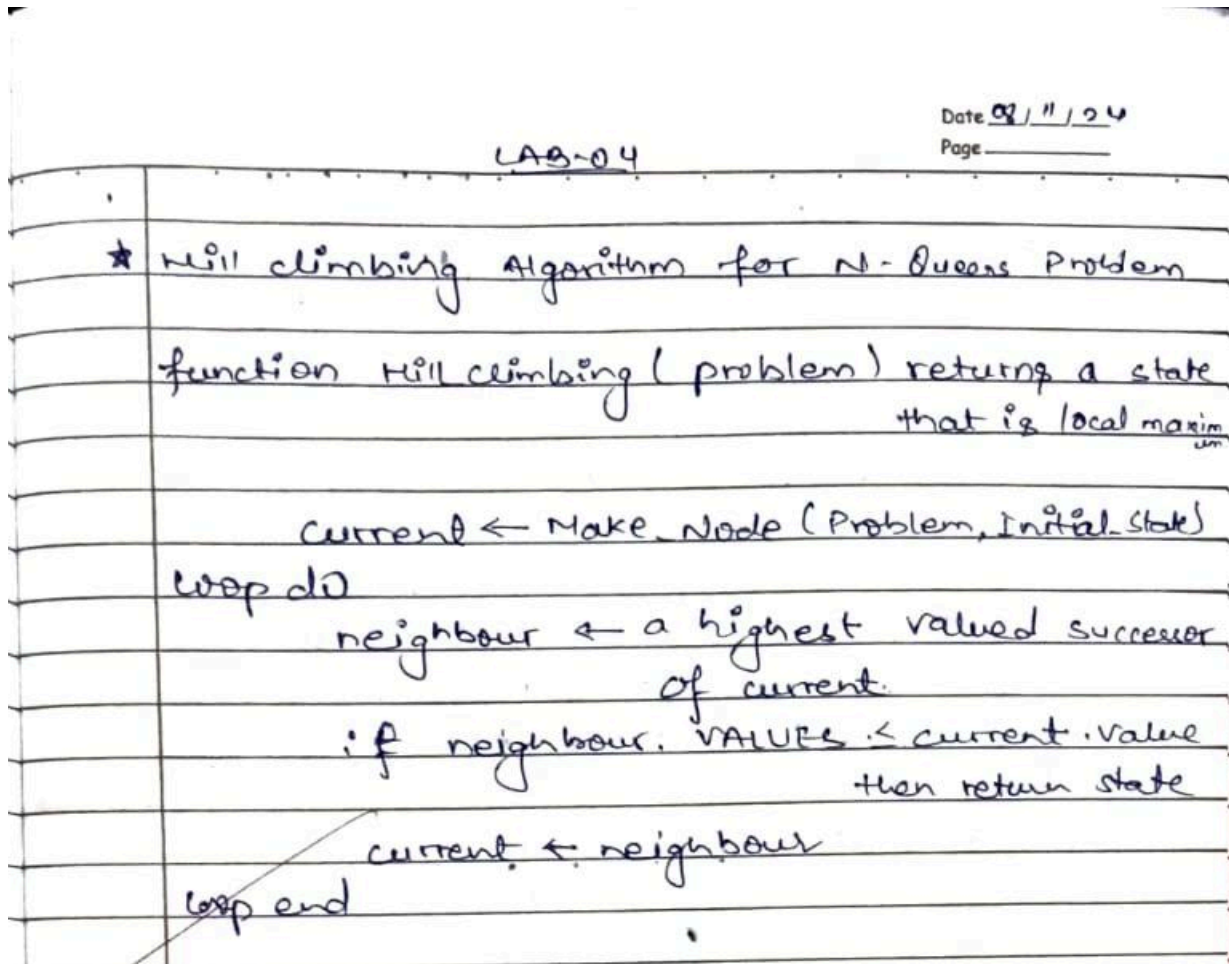 Date 08/11/24
Page
LAB-04
★ Hill climbing Algorithm for N-Queens Problem
function Hill climbing (problem) returns a state
that is local maxim
um
current ← Make_Node (Problem, Initial_State)
loop do
neighbour ← a highest valued successor
of current.
if neighbour. VALUES ≤ current. value
then return state
current ← neighbour
loop end